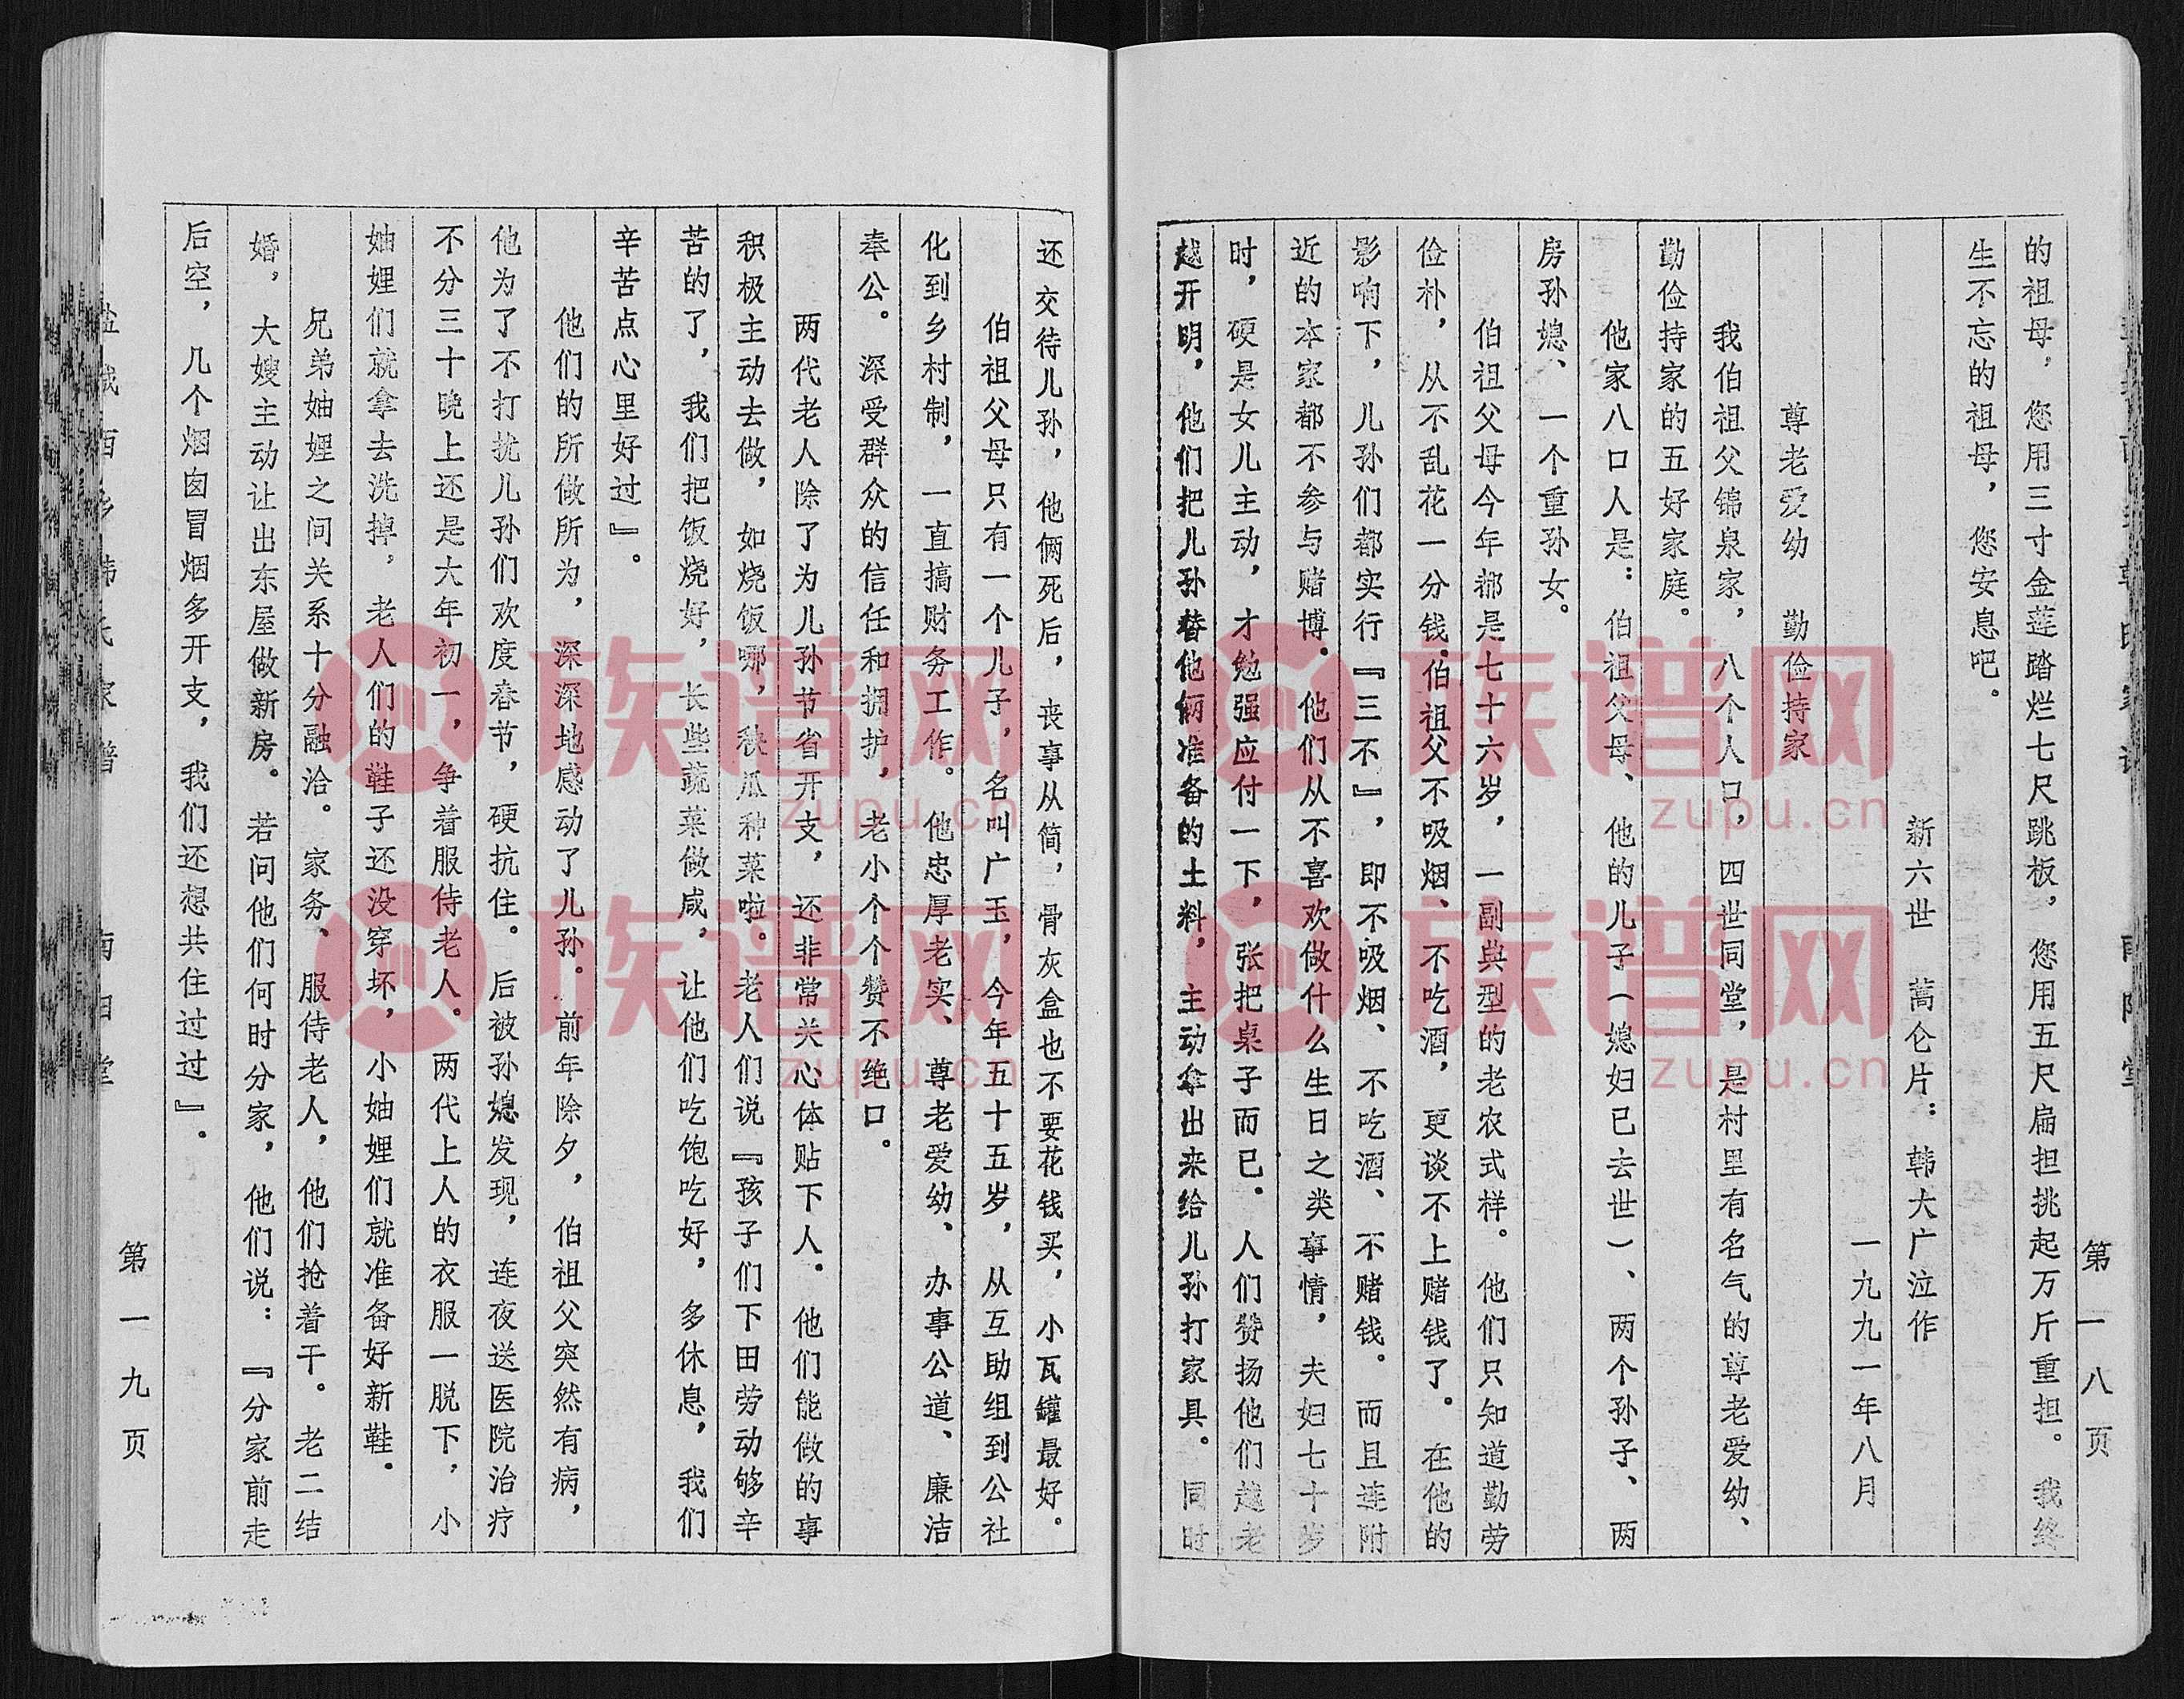 第一八页
的祖母，您用三寸金莲踏烂七尺跳板，您用五尺扁担挑起万斤重担。我终
生不忘的祖母，您安息吧。
新六世 蒿仑片：韩大广泣作
一九九一年八月
尊老爱幼 勤俭持家
我伯祖父锦泉家，八个人口，四世同堂，是村里有名气的尊老爱幼、
勤俭持家的五好家庭。
他家八口人是：伯祖父母、他的儿子（媳妇已去世）、两个孙子、两
房孙媳、一个重孙女。
伯祖父母今年都是七十六岁，一副典型的老农式样。他们只知道勤劳
俭朴，从不乱花一分钱。伯祖父不吸烟、不吃酒，更谈不上赌钱了。在他的
影响下，儿孙们都实行『三不』，即不吸烟、不吃酒、不赌钱。而且连附
近的本家都不参与赌博。他们从不喜欢做什么生日之类事情，夫妇七十岁
时，硬是女儿主动，才勉强应付一下，张把桌子而已．人们赞扬他们越老
越开明，他们把儿孙替他俩准备的土料，主动拿出来给儿孙打家具。同时
还交待儿孙，他俩死后，丧事从简，骨灰盒也不要花钱买，小瓦罐最好。
伯祖父母只有一个儿子，名叫广玉，今年五十五岁，从互助组到公社
化到乡村制，一直搞财务工作。他忠厚老实、尊老爱幼、办事公道、廉洁
奉公。深受群众的信任和拥护，老小个个赞不绝口。
两代老人除了为儿孙节省开支，还非常关心体贴下人．他们能做的事
积极主动去做，如烧饭哪，秧瓜种菜啦。老人们说『孩子们下田劳动够辛
苦的了，我们把饭烧好，长些蔬菜做咸，让他们吃饱吃好，多休息，我们
辛苦点心里好过』。
他们的所做所为，深深地感动了儿孙．前年除夕，伯祖父突然有病，
他为了不打扰儿孙们欢度春节，硬抗住。后被孙媳发现，连夜送医院治疗
不分三十晚上还是大年初一，争着服侍老人。两代上人的衣服一脱下，小
妯娌们就拿去洗掉，老人们的鞋子还没穿坏，小妯娌们就准备好新鞋．
兄弟妯娌之间关系十分融洽。家务、服侍老人，他们抢着干。老二结
婚，大嫂主动让出东屋做新房。若问他们何时分家，他们说：『分家前走
后空，几个烟囱冒烟多开支，我们还想共住过过』．
第一九页
族谱网
zupu.cn
族谱网
zupu.cn
族谱网
zupu.cn
族谱网
zupu.cn